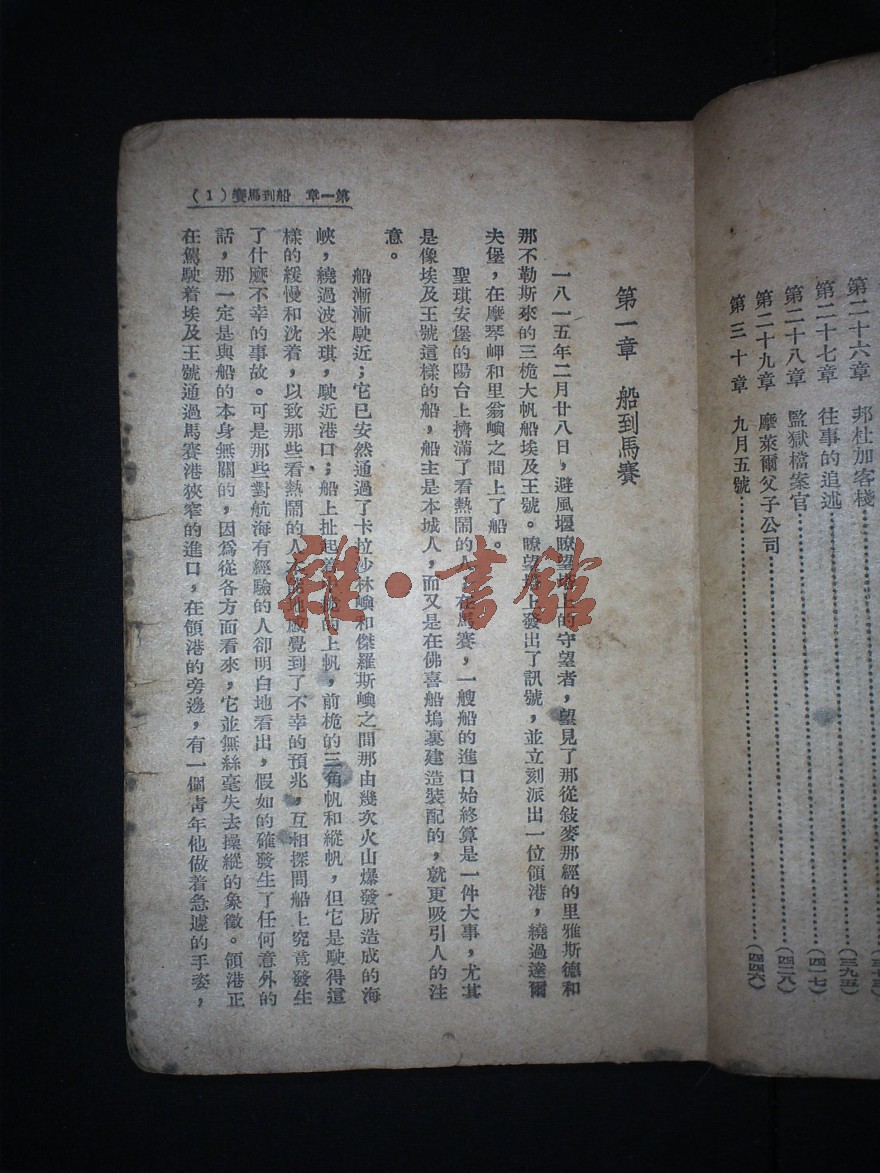 第二十六章 邦杜加客棧
第二十七章 往事的追述(三九五)
第二十八章 監獄檔案官(四一七)
第二十九章 摩萊爾父子公司(四二八)
第三十章 九月五號(四四六)
第一章 船到馬賽(1)
第一章 船到馬賽
一八一五年二月廿八日,避風堰瞭望塔上的守望者,望見了那從敍麥那經的里雅斯德和
那不勒斯來的三桅大帆船埃及王號。瞭望塔上發出了訊號,並立刻派出一位領港,繞過達爾
夫堡,在摩琴岬和里翁嶼之間上了船。
聖琪安堡的陽台上擠滿了看熱鬧的人。在馬賽,一艘船的進口始終算是一件大事,尤其
是像埃及王號這樣的船,船主是本城人,而又是在佛喜船塢裏建造裝配的,就更吸引人的注
意。
船漸漸駛近;它已安然通過了卡拉沙林嶼和傑羅斯嶼之間那由幾次火山爆發所造成的海
峽,繞過波米琪,駛近港口;船上扯起着的上帆,前桅的三角帆和縱帆,但它是駛得這
樣的緩慢和沈着,以致那些看熱鬧的人感覺到了不幸的預兆,互相探問船上究竟發生
了什麼不幸的事故。可是那些對航海有經驗的人卻明白地看出,假如的確發生了任何意外的
話,那一定是與船的本身無關的,因爲從各方面看來,它並無絲毫失去操縱的象徵。領港正
在駕駛着埃及王號通過馬賽港狹窄的進口,在領港的旁邊,有一個青年他做着急遽的手姿,
雜·書館